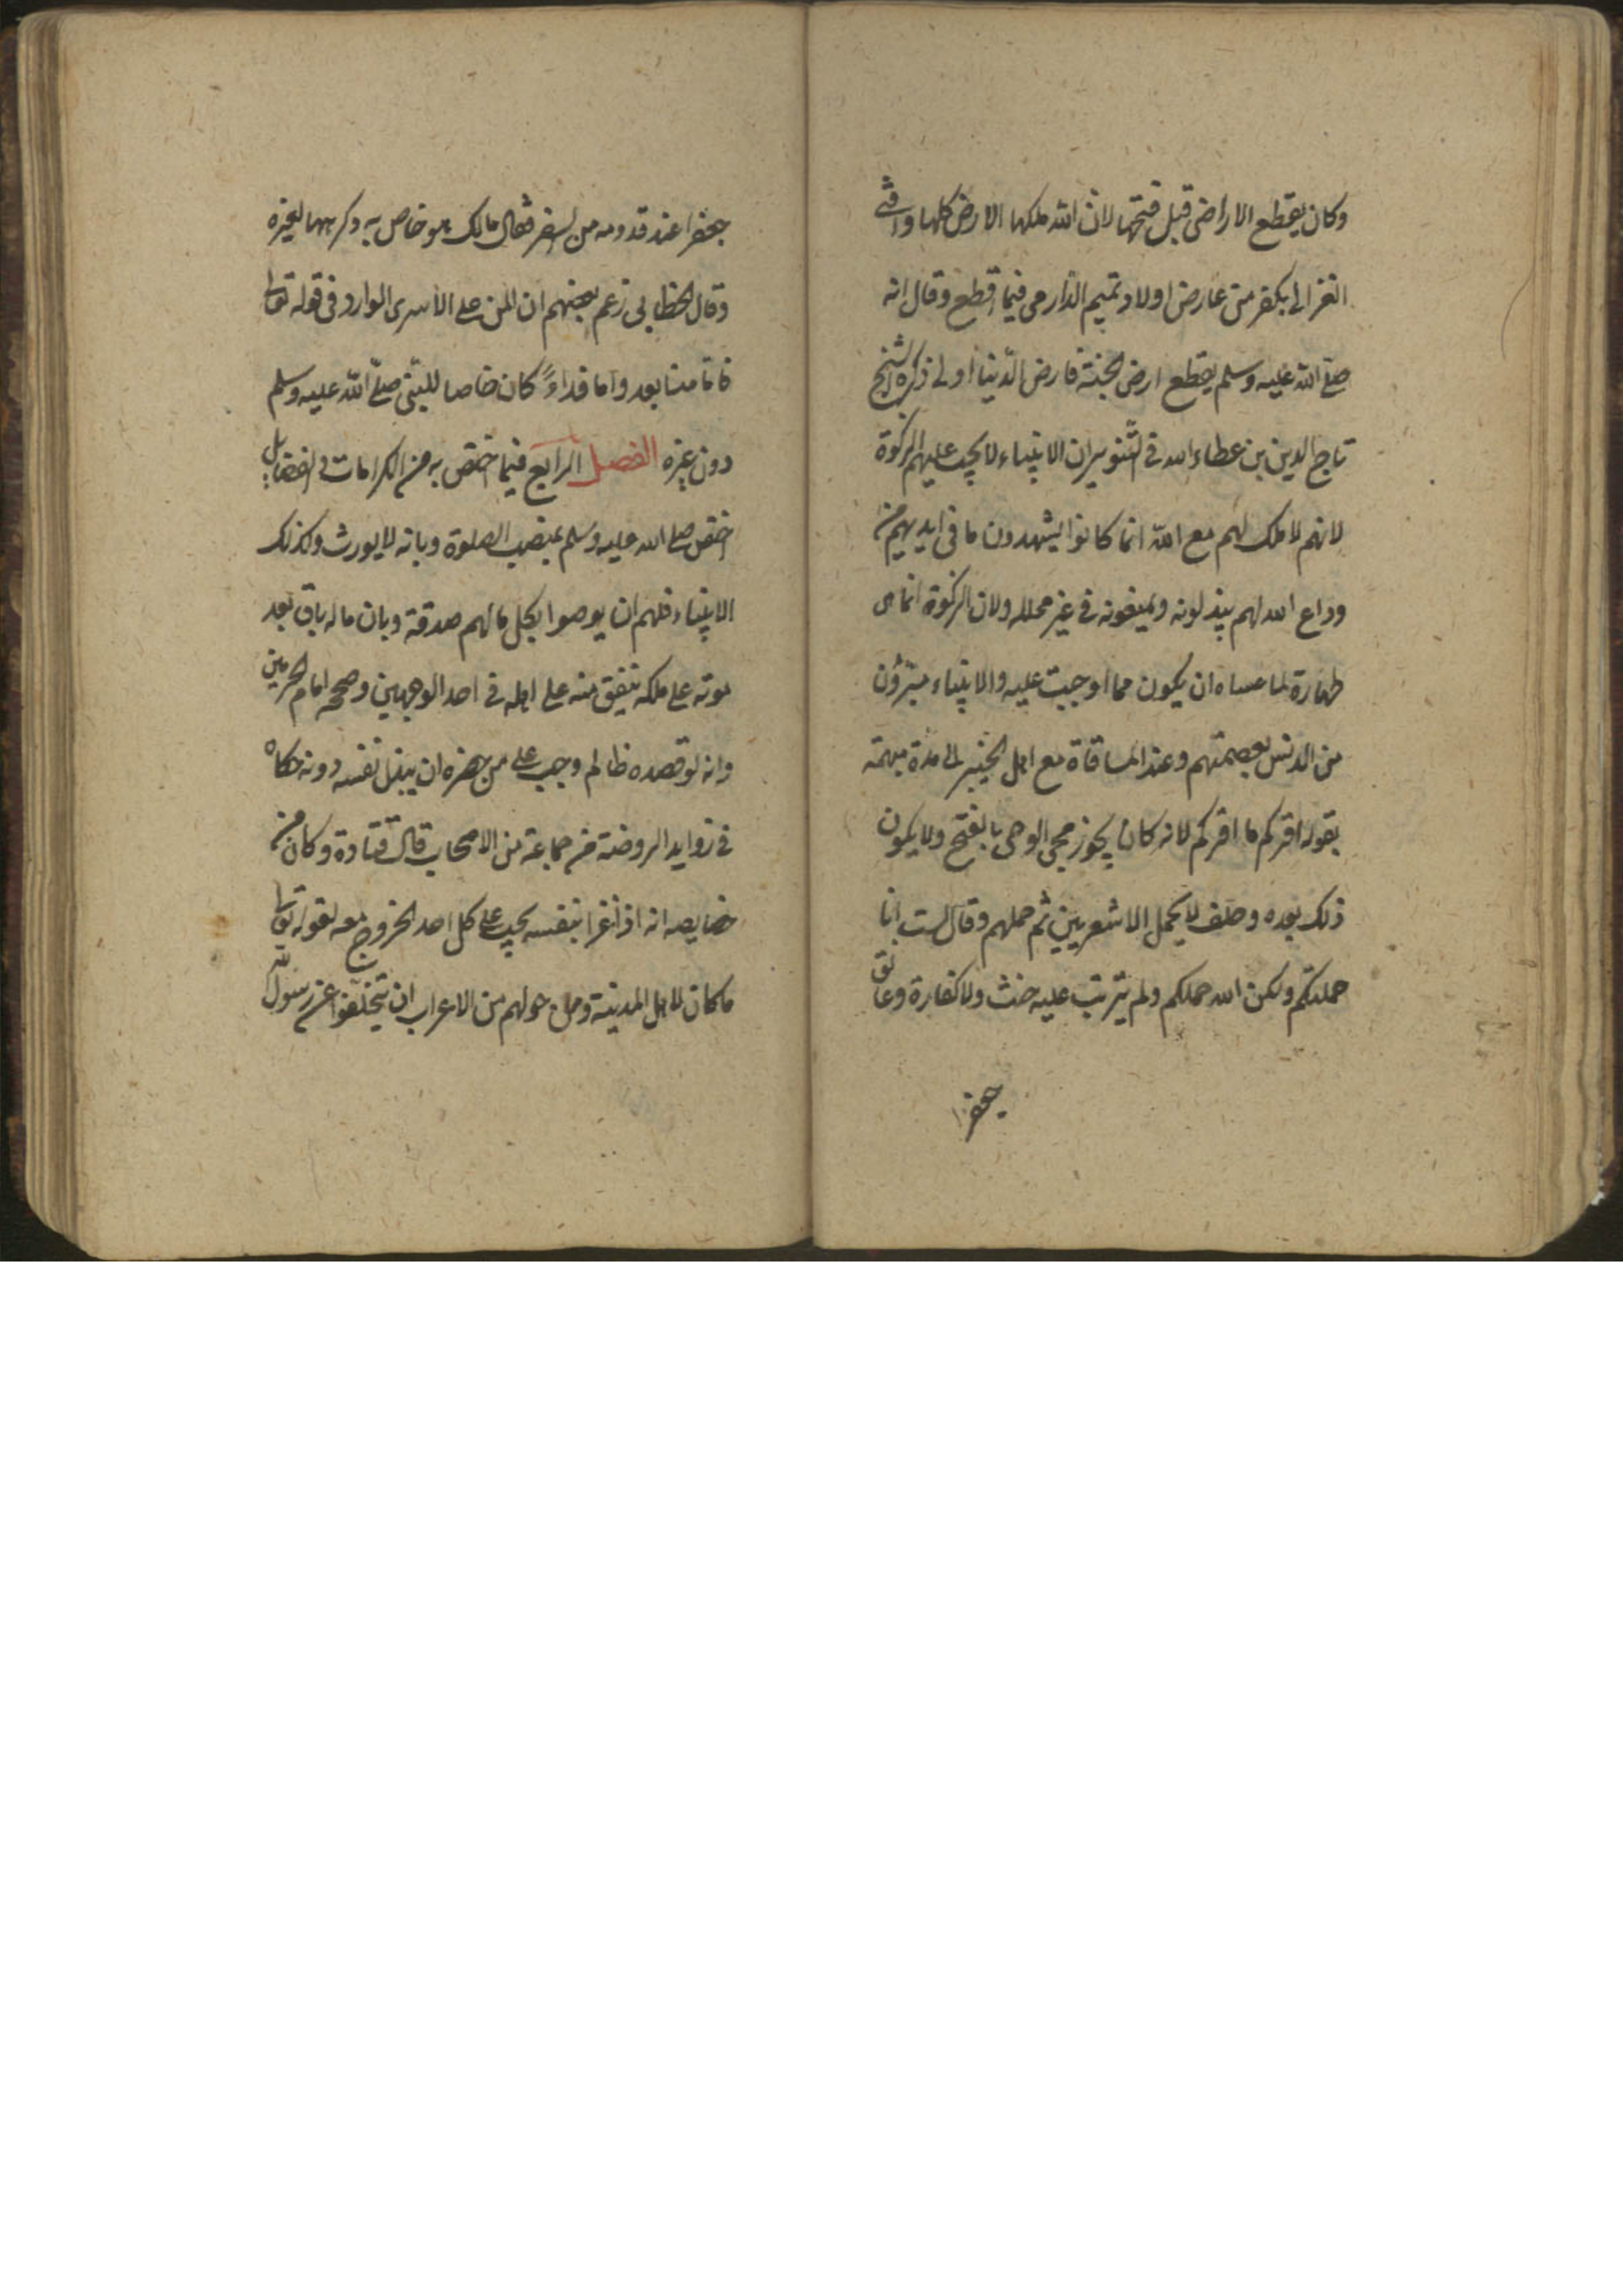 وكان يقطع الاراضى قبل فتحها لان الله ملكها الارض كلها وافتى
الغزالى بكفر من عارض اولاد تميم الدارمى فيما اقطع وقال انه
صلى الله عليه وسلم يقطع ارض الجنة فارض الدنيا اولى ذكره الشيخ
تاج الدين بن عطاء الله فى التنوير ان الانبياء لا يجب عليهم الزكوة
لانهم لا ملك لهم مع الله انما كانوا يشهدون ما فى ايديهم من
وداع الله لهم يبذلونه ويمنعونه فى غير محلله ولان الزكوة انما هى
طهارة لما عساه ان يكون مما اوجبت عليه والانبياء مبرؤن
من الدنس بعصمتهم وعند المساقاة مع اهل الخيبر الى مدة مبهمة
بقوله اقركم ما اقركم لانه كان يجوز مجى الوحى بالفتح ولا يكون
ذلك بعده وحلف لا يحمل الاشعريين ثم حملهم وقال لست انا
حملتكم ولكن الله حملكم ولم يترتب عليه حنث ولا كفارة وعانق
جعفرا
جعفرا عند قدومه من السفر فقال مالك هو خاص به وكرهها لغيره
وقال الخطابى زعم بعضهم ان المن على الأسرى الوارد فى قوله تعالى
فاما منا بعد واما فداءً كان خاصا للنبى صلى الله عليه وسلم
دون غيره الفصل الرابع فيما اختص به من الكرامات والفضايل
اختص صلى الله عليه وسلم بمنصب الصلوة وبانه لا يورث وكذلك
الانبياء فلهم ان يوصوا بكل مالهم صدقة وبان ماله باق بعد
موته على ملكه ينفق منه على اهله فى احد الوجهين وصححه امام الحرمين
وانه لو قصده ظالم وجب على من حضره ان يبذل نفسه دونه حكاه
فى زوايد الروضة من جماعة من الاصحاب قال قتادة وكان من
خصايصه انه اذا غزا بنفسه يجب على كل احد الخروج معه لقوله تعالى
ما كان لاهل المدينة ومن حولهم من الاعراب ان يتخلفوا عن رسول الله